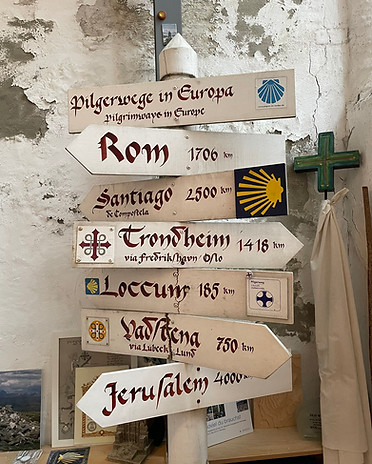 Pilgerwege in Europa
pilgrimways in Europe
Rom 1706 km
Santiago 2500 km
de Compostela
Trondheim 1418 km
via Fredrikshavn/Oslo
Loccum 185 km
Vadstena 750 km
via Lübeck Lund
Jerusalem 4000 km